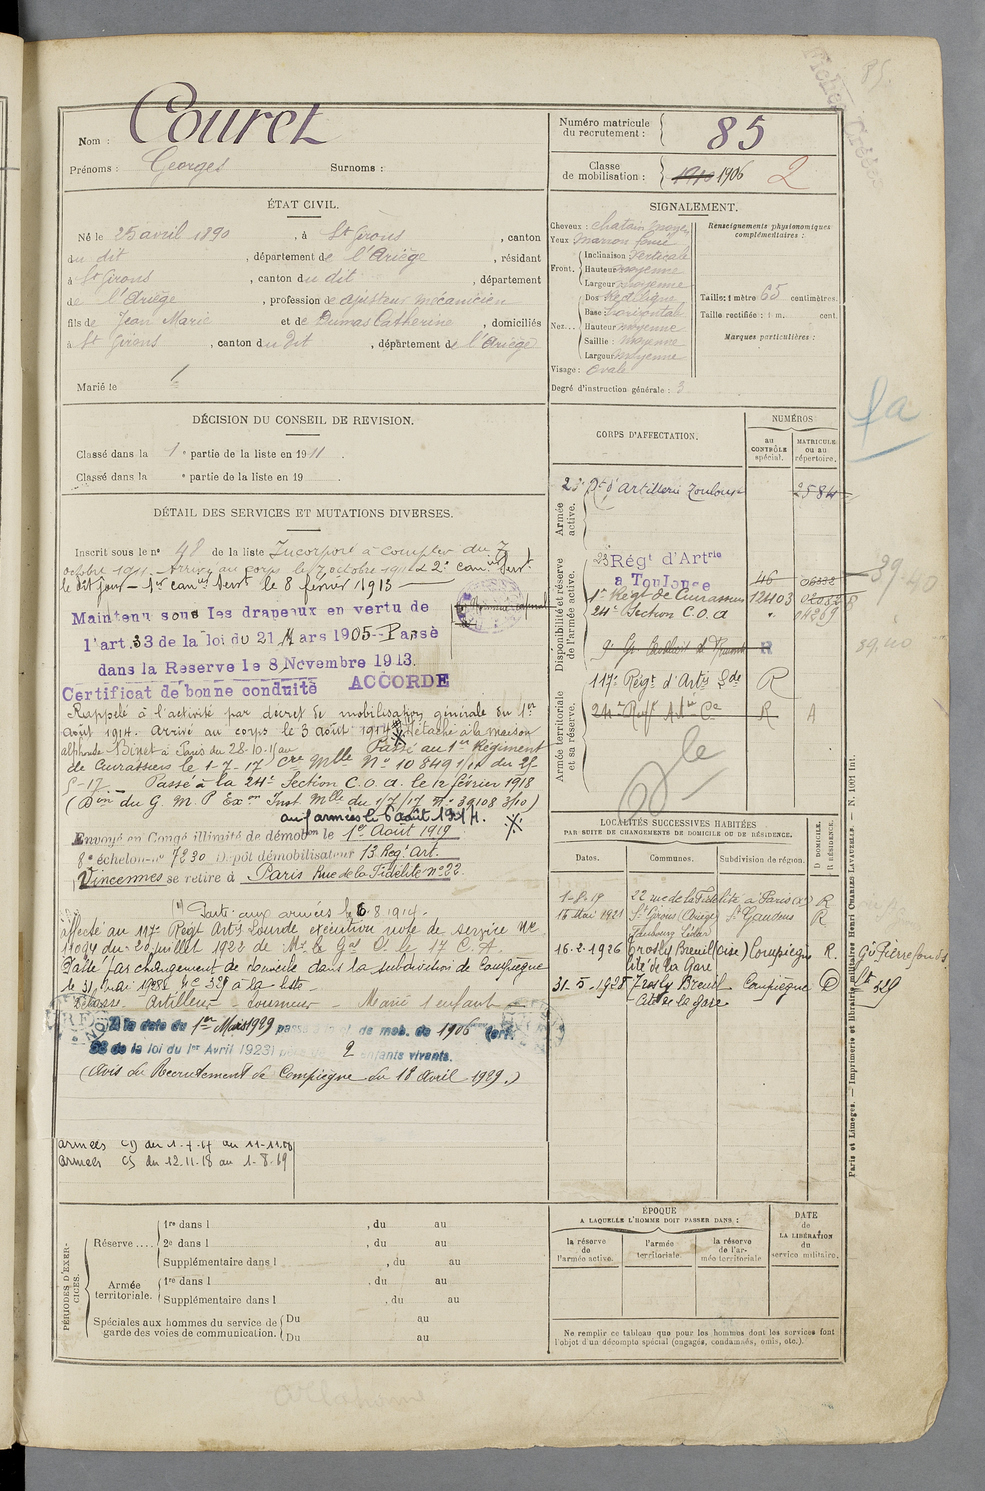 85
Nom : Couret
Prénoms : Georges Surnoms :
Numéro matricule du recrutement : 85
Classe de mobilisation : 1910 1906 2
ÉTAT CIVIL.
Né le 25 avril 1890, à St Girons, canton
du dit, département de l'Ariège, résidant
à St Girons, canton du dit, département
de l'Ariège, profession de ajusteur mécanicien
fils de Jean Marie et de Dumas Catherine, domiciliés
à St Girons, canton du dit, département de l'Ariège
Marié le
SIGNALEMENT.
Cheveux : chatain moyen
Yeux marron foncé
Front. Inclinaison Verticale
Hauteur moyenne
Largeur moyenne
Nez... Dos Rectiligne
Base : horizontale
Hauteur moyenne
Saillie : moyenne
Largeur moyenne
Visage : Ovale
Degré d'instruction générale : 3
Renseignements physionomiques complémentaires :
Taille : 1 mètre 65 centimètres.
Taille rectifiée : 1 m. cent.
Marques particulières :
DÉCISION DU CONSEIL DE REVISION.
Classé dans la 1e partie de la liste en 1911.
Classé dans la e partie de la liste en 19 .
DÉTAIL DES SERVICES ET MUTATIONS DIVERSES.
Inscrit sous le no 48 de la liste Incorporé à compter du 7
octobre 1911 – arrivé au corps le 7 octobre 1911 & 2e canr Servt
le dit jour – 1er canr Servt le 8 février 1913
Maintenu sous les drapeaux en vertu de
l'art. 33 de la loi du 21 Mars 1905 – Passé
dans la Reserve le 8 Novembre 1913.
Certificat de bonne conduite ACCORDÉ
Rappelé à l'activité par décret de mobilisation générale du 1er
août 1914. Arrivé au corps le 3 août 1914 Détaché à la maison
alphonse Binet à Paris du 28-10-15 au Passé au 1er Régiment
de Cuirassiers le 1-7-17 Cre Mlle No 10849 1/11 du 25-
5-17 Passé à la 24e Section C.O.A. le 12 février 1918
(Don du G. M. P Exon Inst Mlle du 1/7/17 no 39108 3/10)
aux armées le 6 août 1914.
Envoyé en Congé illimité de démobon le 1er Août 1919
8e échelon no 7230 Dépôt démobilisateur 13 Regt Art.
Vincennes se retire à Paris Rue de la Fidélité no 22.
Parti aux armées le 6.8.1914.
affecté au 117e Régt Arty Lourde exécution note de service No
11094 du 20 juillet 1922 de Mr le Gal Ct le 17 C. A.
changement de domicile dans la subdivision de Compiègne
le 31 mai 1928 No 329 à la liste
Classe. Artilleur tourneur – Marié 1 enfant
A la date du 1er Mars 1929 passé à la cl. de mob. de 1906 (art.
58 de la loi du 1er Avril 1923) père de 2 enfants vivants.
(Avis du Recrutement de Compiègne du 18 avril 1929.)
armées CD du 1-7-17 au 11-11-18
armées CS du 12.11.18 au 1-8-19
CORPS D'AFFECTATION.
NUMÉROS
au CONTRÔLE spécial.
MATRICULE ou au répertoire.
Armée active.
23e Rt d'Artillerie Toulouse 2584
Disponibilité et réserve de l'armée active.
23 Régt d'Artrie
a Toulouse 46
1er Régt de Cuirassiers 12403
24e Section C.O.A. " 04269
Armée territoriale et sa réserve.
117e Régt d'Arty Lde R
R A
39.40
59.40
LOCALITÉS SUCCESSIVES HABITÉES
PAR SUITE DE CHANGEMENTS DE DOMICILE OU DE RÉSIDENCE.
Dates. Communes. Subdivision de région. D DOMICILE. R RÉSIDENCE.
1-8-19 22 rue de la Fidélité à Paris (X) R
15 Mai 1921 St Girons (Ariège) St Gaudens R
16.2.1926 Trosly Breuil (Oise) Compiègne R. Gs Pierrefonds
Cité de la Gare
31.5.1928 Trosly Breuil Compiègne D Lt 329
Cité de la gare
PÉRIODES D'EXERCICES.
Réserve.... 1re dans l , du au
2e dans l , du au
Supplémentaire dans l , du au
Armée territoriale. 1re dans l , du au
Supplémentaire dans l , du au
Spéciales aux hommes du service de garde des voies de communication. Du au
Du au
ÉPOQUE
A LAQUELLE L'HOMME DOIT PASSER DANS :
la réserve de l'armée active.
l'armée territoriale.
la réserve de l'armée territoriale
DATE de LA LIBÉRATION du service militaire.
Ne remplir ce tableau que pour les hommes dont les services font
l'objet d'un décompte spécial (engagés, condamnés, omis, etc.).
Paris et Limoges. — Imprimerie et librairie militaires Henri CHARLES LAVAUZELLE. — N. 1001 Int.